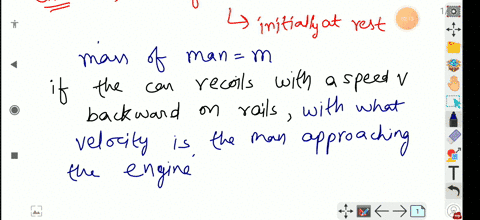 ↳ initially at rest
mass of man = m
if the car recoils with a speed v
backward on rails, with what
velocity is the man approaching
the engine.